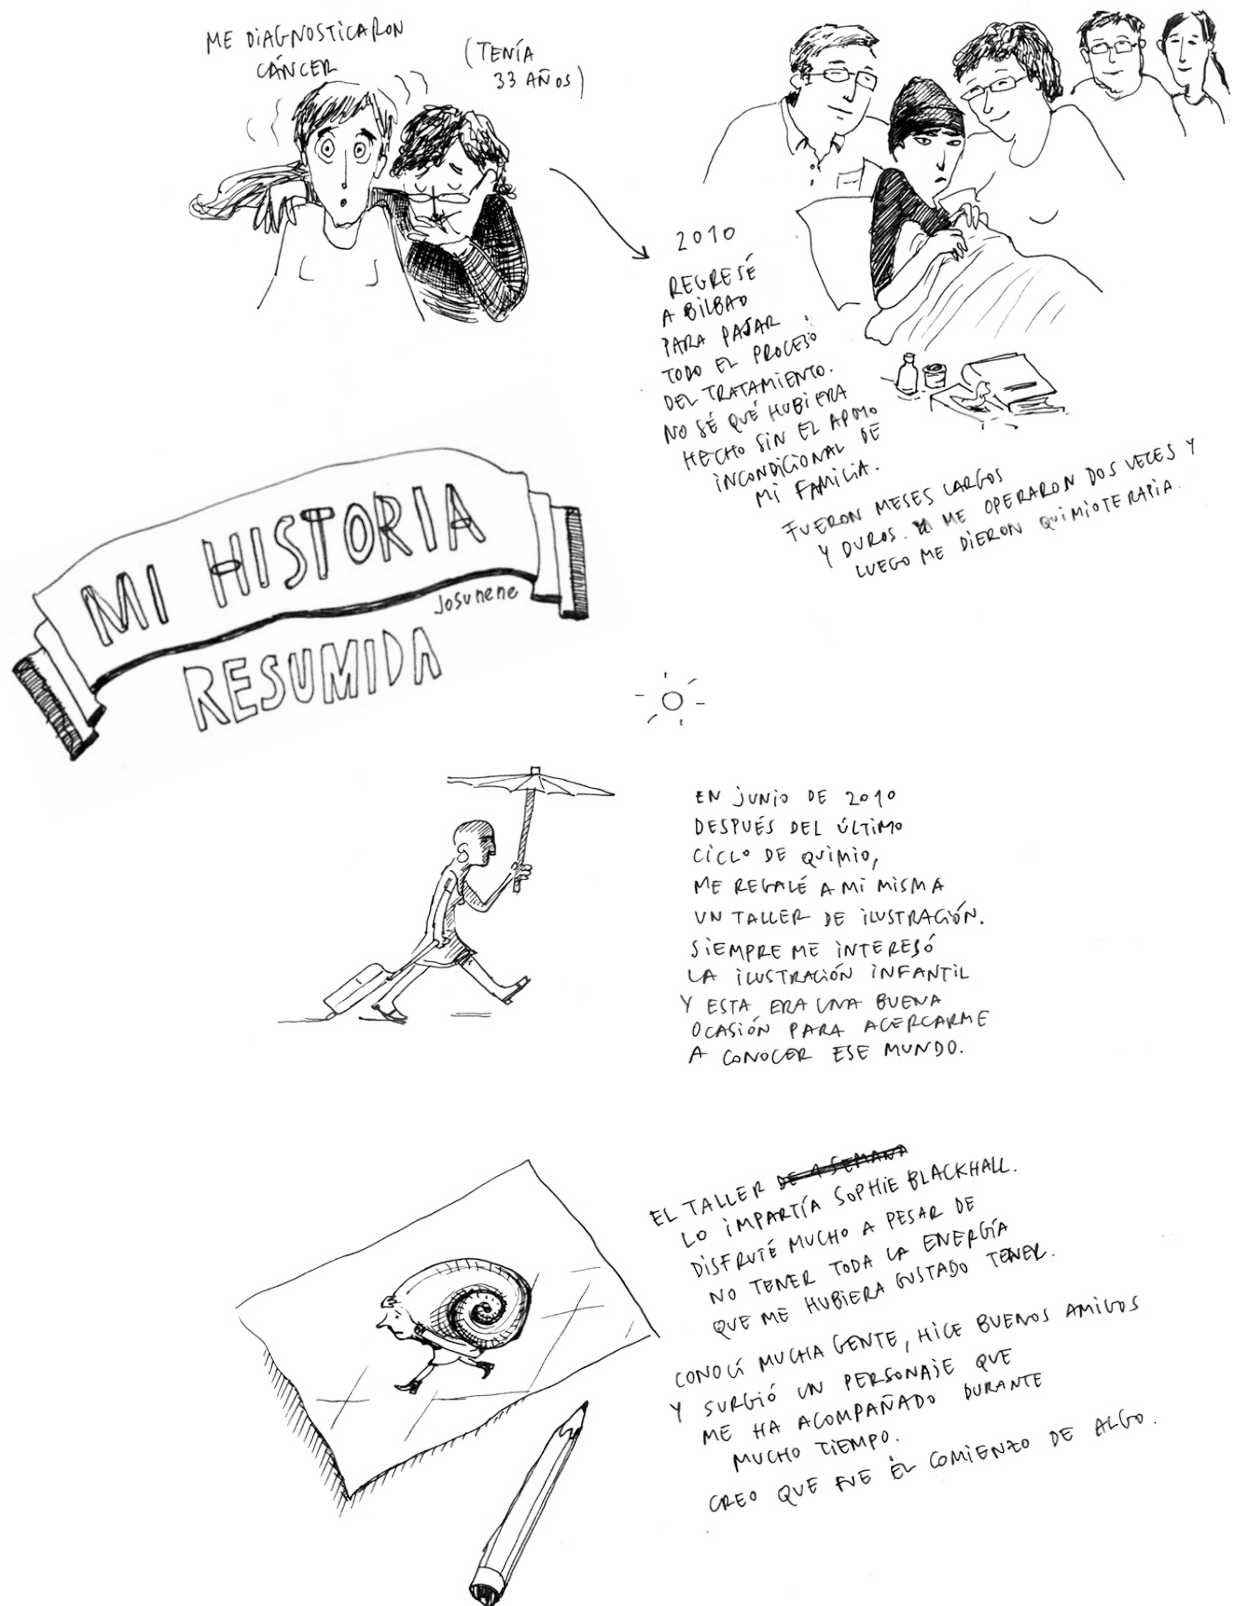 ME DIAGNOSTICARON
CÁNCER
(TENÍA
33 AÑOS)
2010
REGRESÉ
A BILBAO
PARA PASAR
TODO EL PROCESO
DEL TRATAMIENTO.
NO SÉ QUÉ HUBIERA
HECHO SIN EL APOYO
INCONDICIONAL DE
MI FAMILIA.
FUERON MESES LARGOS
Y DUROS. ME OPERARON DOS VECES Y
LUEGO ME DIERON QUIMIOTERAPIA.
MI HISTORIA
Josunene
RESUMIDA
EN JUNIO DE 2010
DESPUÉS DEL ÚLTIMO
CICLO DE QUIMIO,
ME REGALÉ A MI MISMA
UN TALLER DE ILUSTRACIÓN.
SIEMPRE ME INTERESÓ
LA ILUSTRACIÓN INFANTIL
Y ESTA ERA UNA BUENA
OCASIÓN PARA ACERCARME
A CONOCER ESE MUNDO.
EL TALLER DE 1 SEMANA
LO IMPARTÍA SOPHIE BLACKHALL.
DISFRUTÉ MUCHO A PESAR DE
NO TENER TODA LA ENERGÍA
QUE ME HUBIERA GUSTADO TENER.
CONOCÍ MUCHA GENTE, HICE BUENOS AMIGOS
Y SURGIÓ UN PERSONAJE QUE
ME HA ACOMPAÑADO DURANTE
MUCHO TIEMPO.
CREO QUE FUE ÉL COMIENZO DE ALGO.